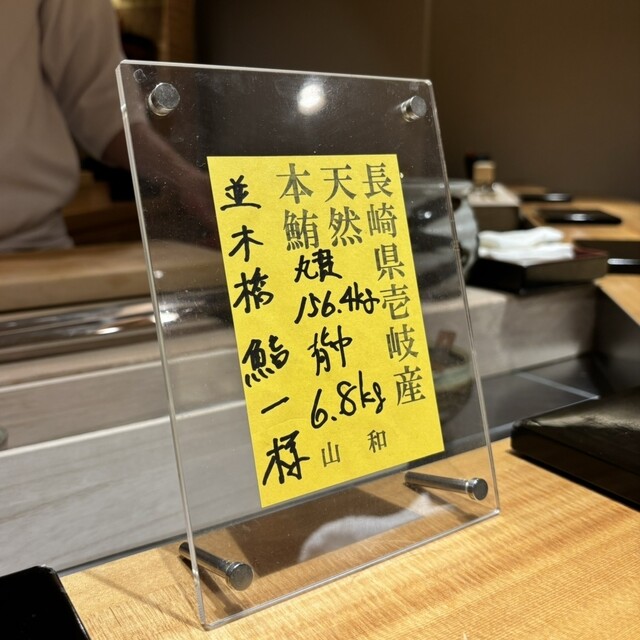 長崎県壱岐産
天然
本鮪
丸貫
156.4kg
背中
6.8kg
和山
並木橋 鮨一様